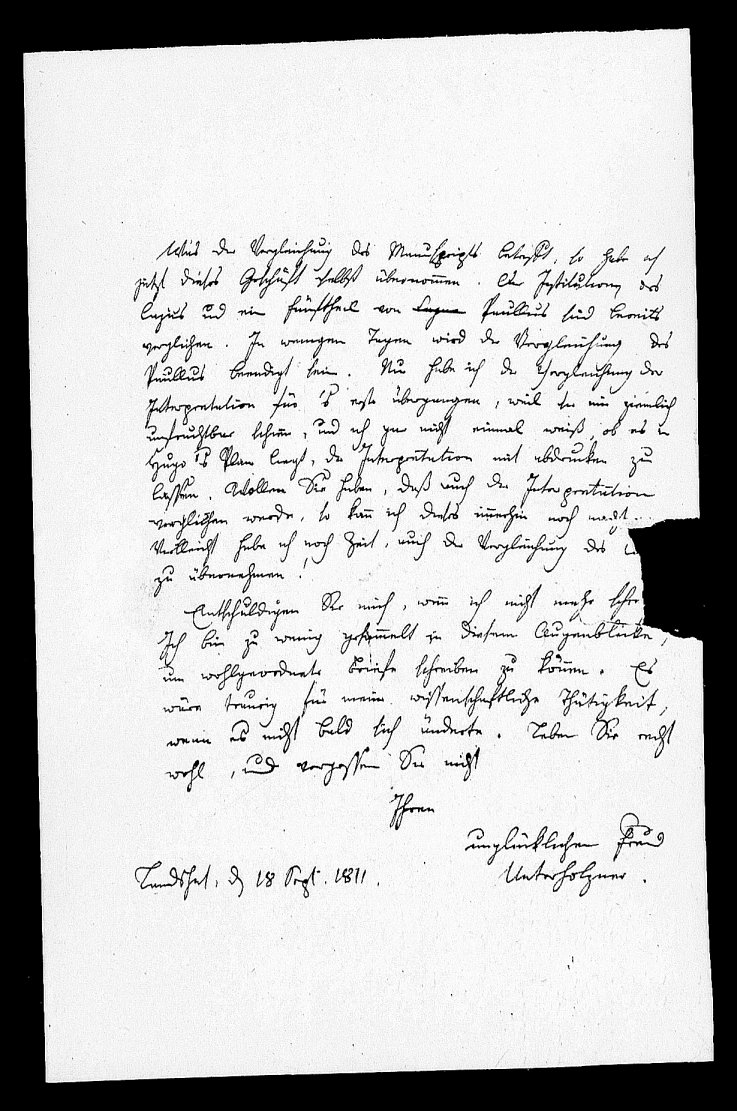 Was die Vergleichung des Manuscripts betrifft, so habe ich
jetzt dieses Geschäft selbst übernommen. Die Institutionen des
Cajus und ein Fünftheil von Paullus sind bereits
verglichen. In wenigen Tagen wird die Vergleichung des
Paullus beendigt sein. Nur habe ich die Vergleichung der
Interpretation für's erste übergangen, weil sie mir ziemlich
unfruchtbar schien, und ich gar nicht einmal weiß, ob es in
Hugo's Plan liegt, die Interpretation mit abdrucken zu
lassen. Wollen Sie haben, daß auch die Interpretation
verglichen werde, so kann ich dieses immerhin noch
Vielleicht habe ich noch Zeit, auch die Vergleichung des
zu übernehmen.
Entschuldigen Sie mich, wenn ich nicht mehr schre
Ich bin zu wenig gesammelt in diesem Augenblicke,
um wohlgeordnete Briefe schreiben zu können. Es
wäre traurig für meine wissenschaftliche Thätigkeit,
wenn es nicht bald sich änderte. Leben Sie recht
wohl, und vergessen Sie nicht
Ihren
unglücklichen Freund
Unterholzner.
Landshut, d 18 Sept. 1811.